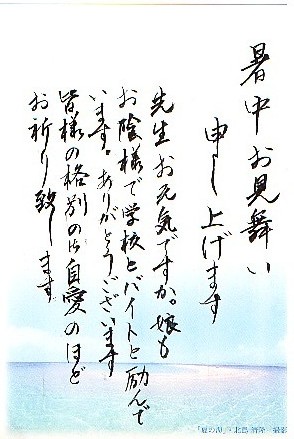 暑中お見舞い
申し上げます
先生お元気ですか。娘も
お陰様で学校とバイトと励んで
います。ありがとうございます
皆様の格別の御自愛のほど
お祈り致します
「夏の海」・北島 清隆 撮影